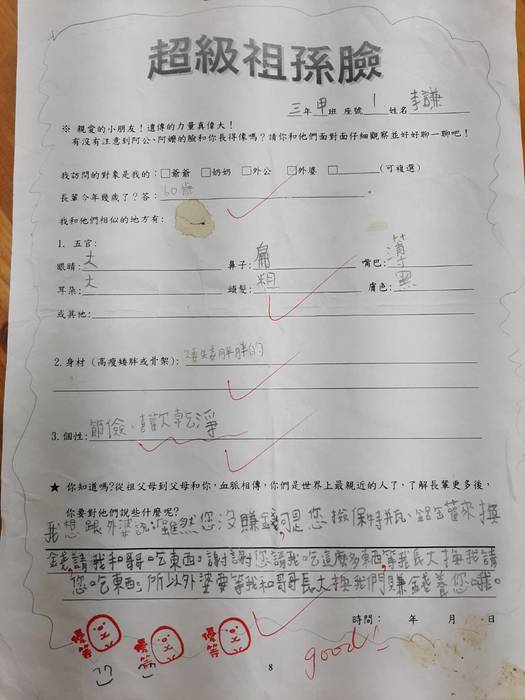 超級祖孫臉
三年甲班 座號 1 姓名 李謙
※ 親愛的小朋友！遺傳的力量真偉大！
有沒有注意到阿公、阿嬤的臉和你長得像嗎？請你和他們面對面仔細觀察並好好聊一聊吧！
我訪問的對象是我的：□爺爺 □奶奶 □外公 □外婆 □ (可複選)
長輩今年幾歲了？答：60歲
我和他們相似的地方有：
1. 五官：
眼睛：大 鼻子：扁 嘴巴：薄
耳朵：大 頭髮：粗 膚色：黑
或其他：
2. 身材 (高瘦矮胖或骨架)：矮矮胖胖的
3. 個性：節儉、喜歡乾淨
★ 你知道嗎?從祖父母到父母和你，血脈相傳，你們是世界上最親近的人了，了解長輩更多後，
你要對他們說些什麼呢？
我想跟外婆說：雖然您沒賺錢，可是您撿保特瓶、鋁罐來換
錢，請我和哥吃東西。謝謝您請我吃這麼多東西，等我長大換我請
您吃東西。所以外婆要等我和哥哥長大換我們賺錢養您哦。
時間： 年 月 日
優等 優等 優等
good！
8